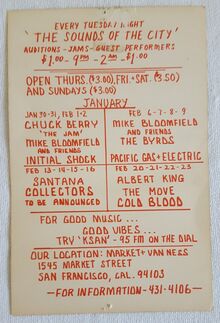 EVERY TUESDAY NIGHT
'THE SOUNDS OF THE CITY'
AUDITIONS - JAMS - GUEST PERFORMERS
$1.00 - 9PM - 2AM - $1.00
OPEN THURS. ($3.00), FRI. + SAT. ($3.50)
AND SUNDAYS ($3.00)
JANUARY
JAN 30-31, FEB 1-2
CHUCK BERRY
'THE JAM'
MIKE BLOOMFIELD
AND FRIENDS
INITIAL SHOCK
FEB 6-7-8-9
MIKE BLOOMFIELD
AND FRIENDS
THE BYRDS
PACIFIC GAS + ELECTRIC
FEB 13-14-15-16
SANTANA
COLLECTORS
TO BE ANNOUNCED
FEB 20-21-22-23
ALBERT KING
THE MOVE
COLD BLOOD
FOR GOOD MUSIC ...
GOOD VIBES ...
TRY 'KSAN' - 95 FM ON THE DIAL
OUR LOCATION: MARKET + VAN NESS
1545 MARKET STREET
SAN FRANCISCO, CAL. 94103
—FOR INFORMATION - 431-4106—